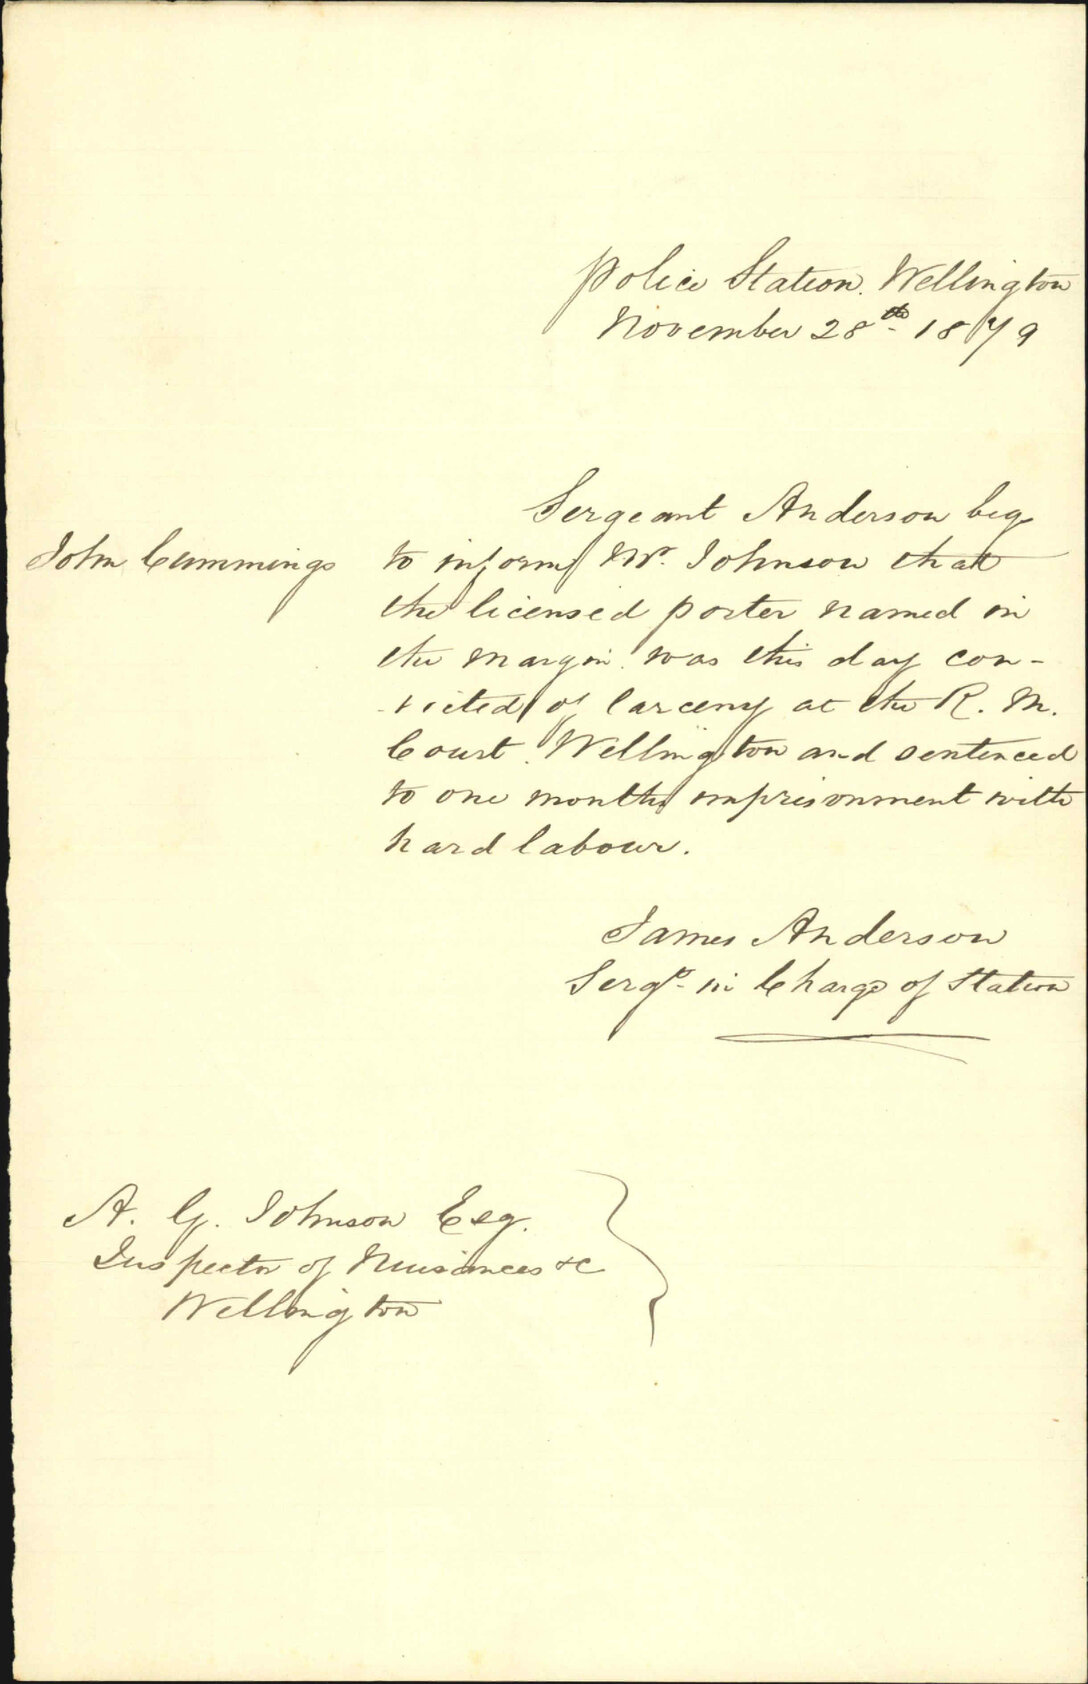 Police Station. Wellington
November 28th 1879
Sergeant Anderson begs
John Cummings
to inform Mr. Johnson that
the licensed porter named in
the margin was this day con-
-victed of larceny at the R. M.
Court Wellington and sentenced
to one months imprisonment with
hard labour.
James Anderson
Sergt. in Charge of Station
A. G. Johnson Esq.
Inspector of Nuisances &c
Wellington